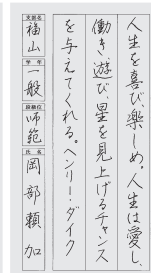 人生を喜び、楽しめ。人生は愛し、
働き、遊び、星を見上げるチャンス
を与えてくれる。ヘンリー・ダイク
支部名
福山
学年
一般
段級位
师範
氏名
岡部頼加